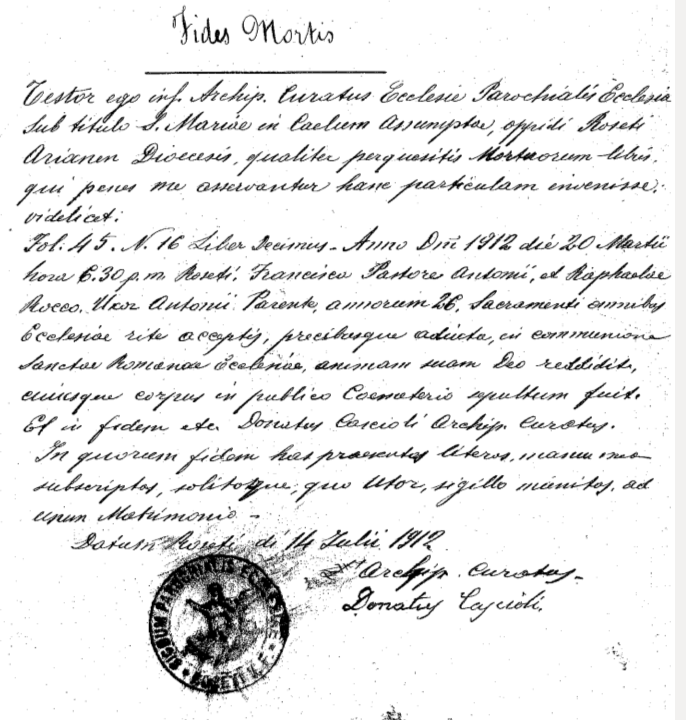 Fides Mortis
Testor ego inf. Archip. Curatus Ecclesie Parochialis Ecclesia
sub titulo S. Mariae in Caelum Assumptae, oppidi Roseti
Arianen Dioecesis, qualiter perquesitis Mortuorum libris,
qui penes me asservantur hanc particulam invenisse,
videlicet:
Fol. 45. N. 16 Liber Decimus - Anno Dni 1912 die 20 Martii
hora 6.30 p.m. Roseti, Francisca Pastore Antonii, et Raphaelae
Rocco. Uxor Antonii Parente, annorum 26, Sacramenti omnibus
Ecclesiae rite acceptis, precibusque adiuta, in communione
Sanctae Romanae Ecclesiae, animam suam Deo reddidit,
cuiusque corpus in publico Coemeterio sepultum fuit.
Et in fidem etc. Donatus Cascioli Archip. Curatus.
In quorum fidem has praesentes literas, manu mea
subscriptas, solitoque, quo utor, sigillo munitas, ad
unum Matrimonio -
Datum Roseti di 14 Julii 1912
Archip. Curatus -
Donatus Cascioli
SIGNUM PAROCHIALIS ECCLESIAE
ROSETI V.F.